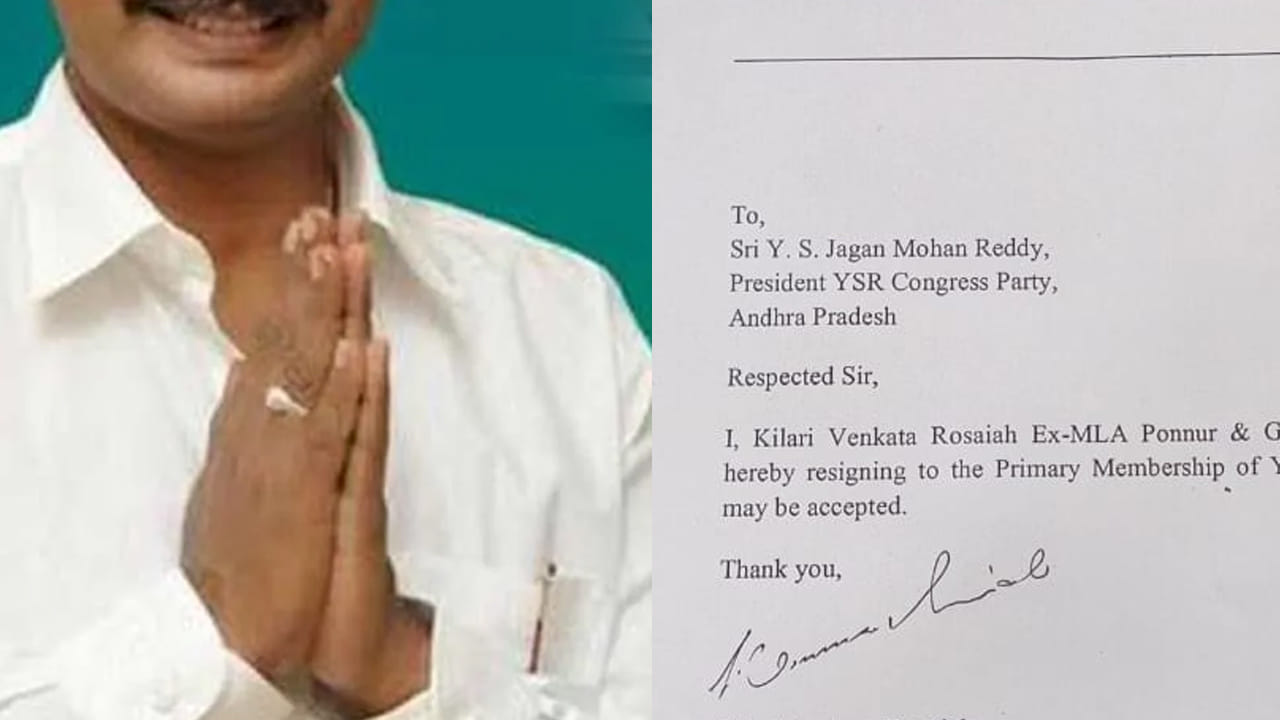 To,
Sri Y. S. Jagan Mohan Reddy,
President YSR Congress Party,
Andhra Pradesh
Respected Sir,
I, Kilari Venkata Rosaiah Ex-MLA Ponnur & G
hereby resigning to the Primary Membership of Y
may be accepted.
Thank you,